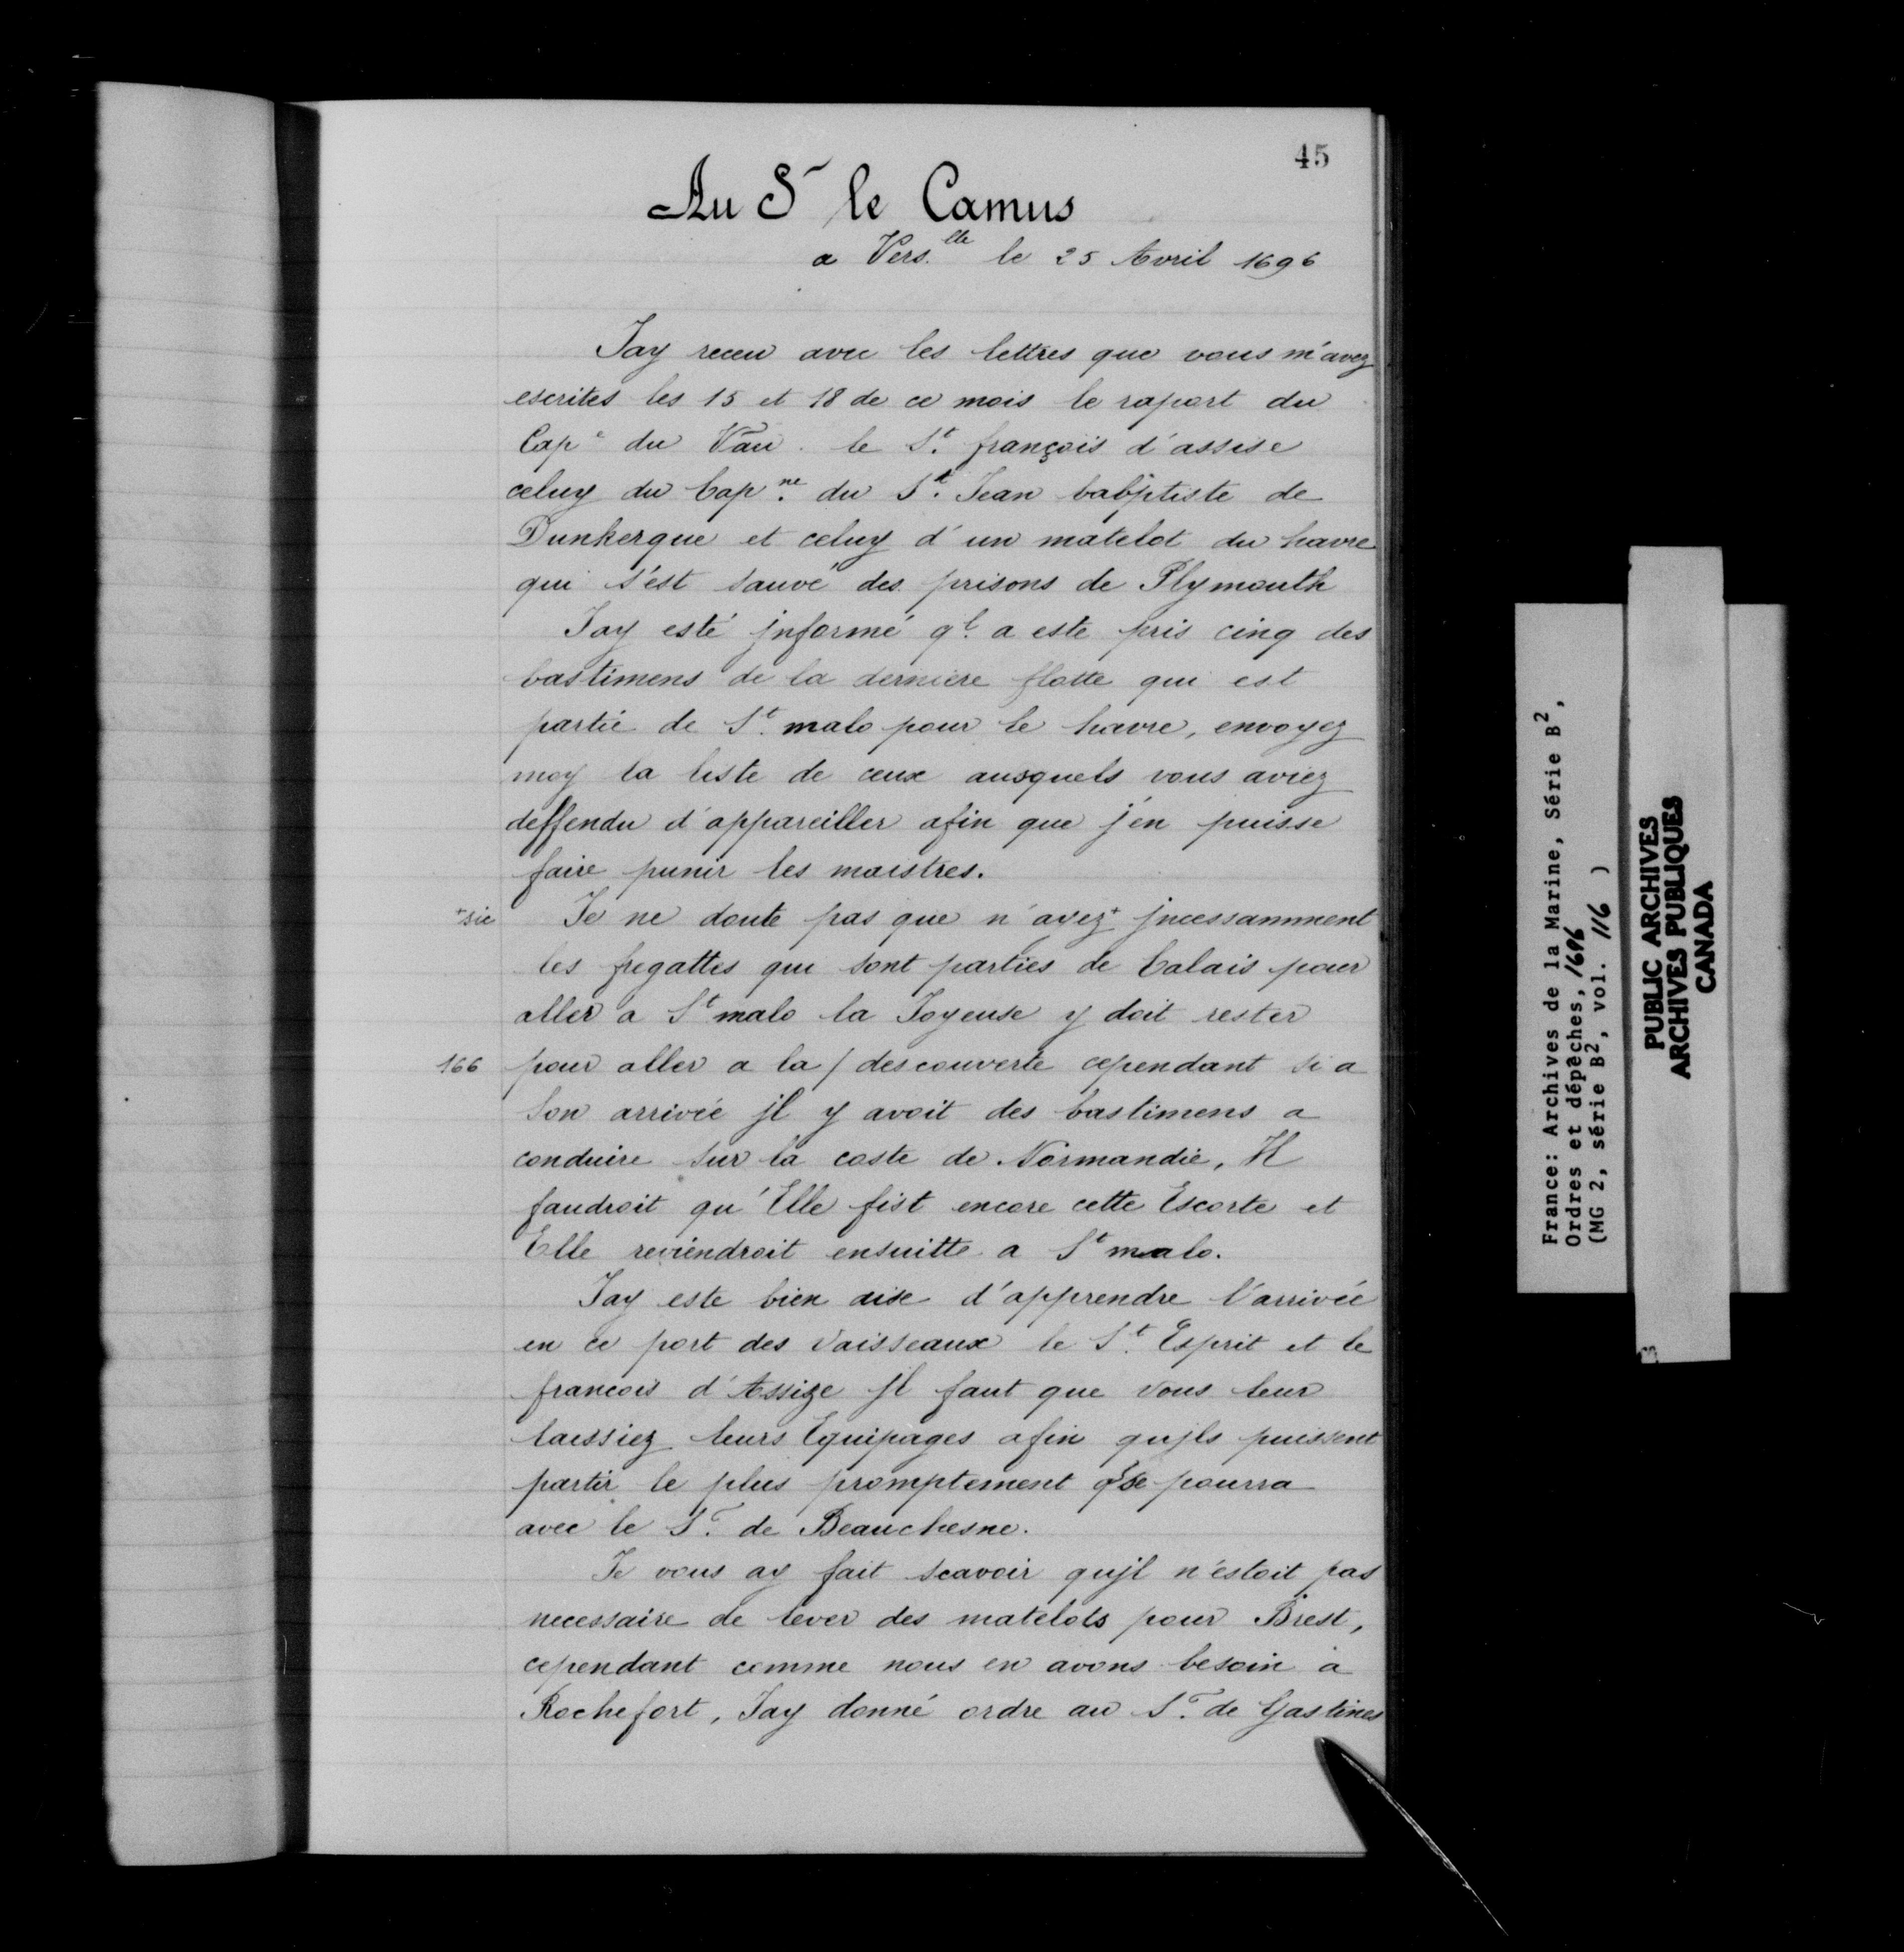 45
Au Sr le Camus
a Vers.lle le 25 Avril 1696
Jay receu avec les lettres que vous m'avez
escrites les 15 et 18 de ce mois le raport du
Cape du Vau. le St. françois d'assise
celuy du Capne. du St. Jean babptiste de
Dunkerque et celuy d'un matelot du havre
qui s'est sauvé des prisons de Plymouth
Jay esté jnformé ql. a este pris cinq des
bastimens de la derniere flotte qui est
partie de St. malo pour le havre, envoyez
moy la liste de ceux ausquels vous aviez
deffendu d'appareiller afin que j'en puisse
faire punir les maistres.
+sic Je ne doute pas que n'ayez+ jncessamment
les fregattes qui sont parties de Calais pour
aller a St malo la Joyeuse y doit rester
166 pour aller a la / descouverte cependant si a
son arrivée jl y avoit des bastimens a
conduire sur la coste de Normandie, Il
faudroit qu'Elle fist encore cette Escorte et
Elle reviendroit ensuitte a St malo.
Jay este bien aise d'apprendre l'arrivée
en ce port des vaisseaux le St. Esprit et le
francois d'Assize jl faut que vous leur
laissiez leurs Equipages afin qujls puissent
partir le plus promptement ql se pourra
avec le Sr. de Beauchesne.
Je vous ay fait scavoir qujl n'estoit pas
necessaire de lever des matelots pour Brest,
cependant comme nous en avons besoin a
Rochefort, Jay donné ordre au Sr. de Gastines
France: Archives de la Marine, Série B2,
Ordres et dépêches, 1696
(MG 2, série B2, vol. 116 )
PUBLIC ARCHIVES
ARCHIVES PUBLIQUES
CANADA